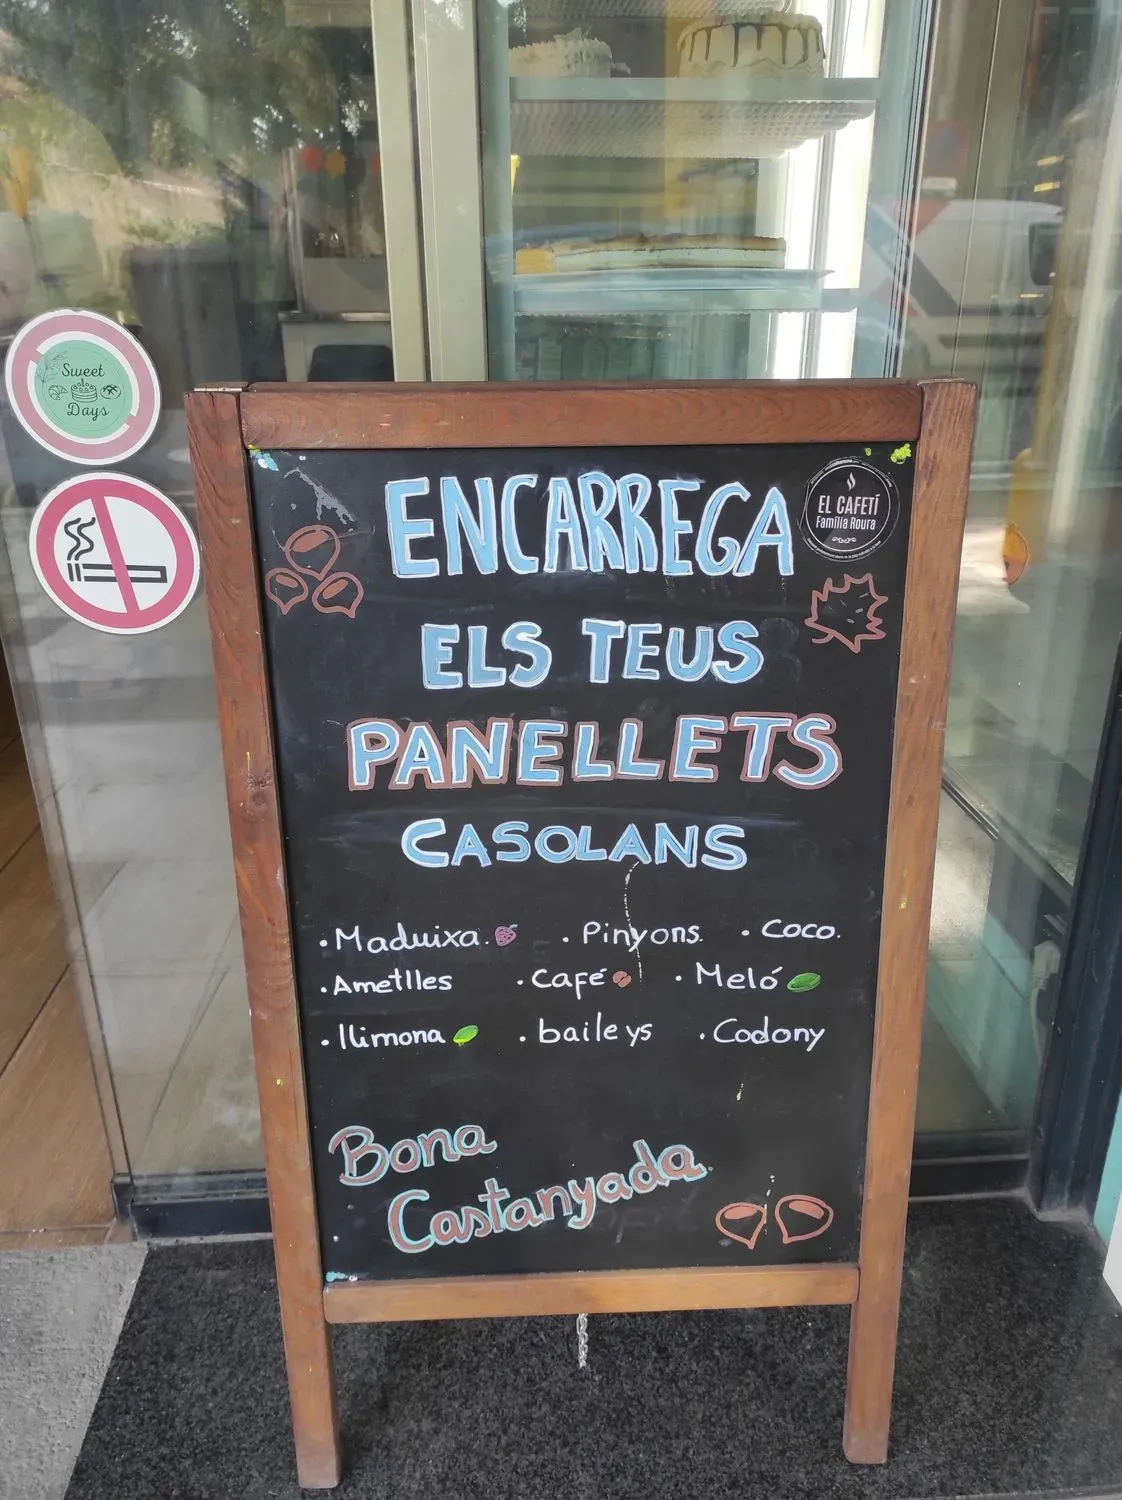 Sweet
Days
ENCARREGA
EL CAFETÍ
Família Roura
ELS TEUS
PANELLETS
CASOLANS
· Maduixa. · Pinyons. · Coco.
· Ametlles · Café · Meló
· llimona · baileys · Codony
Bona
Castanyada